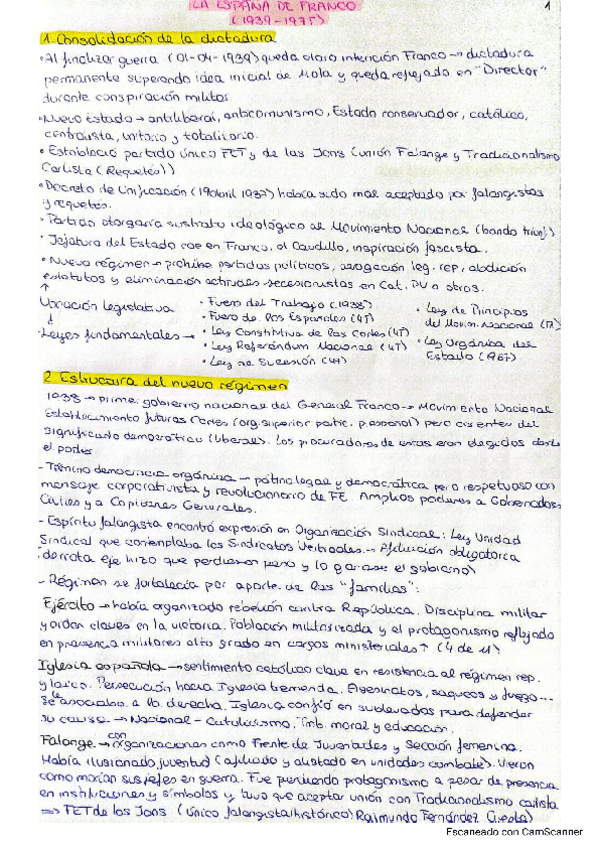 LA ESPAÑA DE FRANCO
1
(1939-1975)
1. Consolidación de la dictadura
• Al finalizar guerra (01-04-1939) queda clara intención Franco → dictadura
permanente superando idea inicial de Mola y queda reflejado en "Director"
durante conspiración militar.
• Nuevo Estado → antiliberal, anticomunismo, Estado conservador, católico,
centralista, unitario y totalitario.
• Estableció partido único FET y de las Jons (unión Falange y Tradicionalismo
Carlista (Requetés))
• Decreto de Unificación (19 abril 1937) había sido mal aceptado por falangistas
y requetés.
• Partido otorgaría sustrato ideológico al Movimiento Nacional (bando triunf.)
• Jefatura del Estado cae en Franco, el Caudillo, inspiración fascista.
• Nuevo régimen → prohíbe partidos políticos, leg. rep, abolición
estatutos y eliminación actitudes secesionistas en Cat, PV o otros.
↑
Vocación legislativa
↓
Leyes fundamentales →
• Fuero del Trabajo (1938)
• Fuero de los Españoles (45)
• Ley Constitutiva de las Cortes
• Ley Referéndum Nacional (45)
• Ley de Sucesión
• Ley de Principios
del Movim. Nacional
• Ley Orgánica del
Estado (1967)
2. Estructura del nuevo régimen
1938 → primer gobierno nacional del General Franco → Movimento Nacional
Establecimiento futuras Cortes (org. superior partic. p. español) pero carentes del
significado democrático (liberal). Los procuradores de estas eran elegidos desde
el poder.
- Término democracia orgánica → pátina legal y democrática pero respetuoso con
mensaje corporativista y revolucionario de FE. Amplios poderes a Gobernadores
Civiles y a Capitanes Generales.
- Espíritu falangista encontró expresión en Organización Sindical: Ley Unidad
Sindical que contemplaba los Sindicatos Verticales → Afiliación obligatoria
(derrota eje hizo que perdiesen peso y lo ganase el gobierno)
- Régimen se fortalecía por aporte de las "familias":
Ejército → había organizado rebelión contra República. Disciplina militar
y orden claves en la victoria. Población militarizada y el protagonismo reflejado
en presencia militares alto grado en cargos ministeriales ↑ (4 de 11)
Iglesia española → sentimiento católico clave en resistencia al régimen rep.
y laico. Persecución hacia Iglesia tremenda. Asesinatos, saqueos y fuego...
Se le asociaba a la derecha. Iglesia confió en sublevados para defender
su causa → Nacional-Catolicismo. Tmb. moral y educación.
Falange → con organizaciones como Frente de Juventudes y Sección femenina.
Había ilusionado juventud (afiliado y alistado en unidades combate). Vieron
como morían sus jefes en guerra. Fue perdiendo protagonismo a pesar de presencia
en instituciones y símbolos y tuvo que aceptar unión con Tradicionalismo carlista
→ FET de los Jons (único falangista histórico) Raimundo Fernández Cuesta)
Escaneado con CamScanner